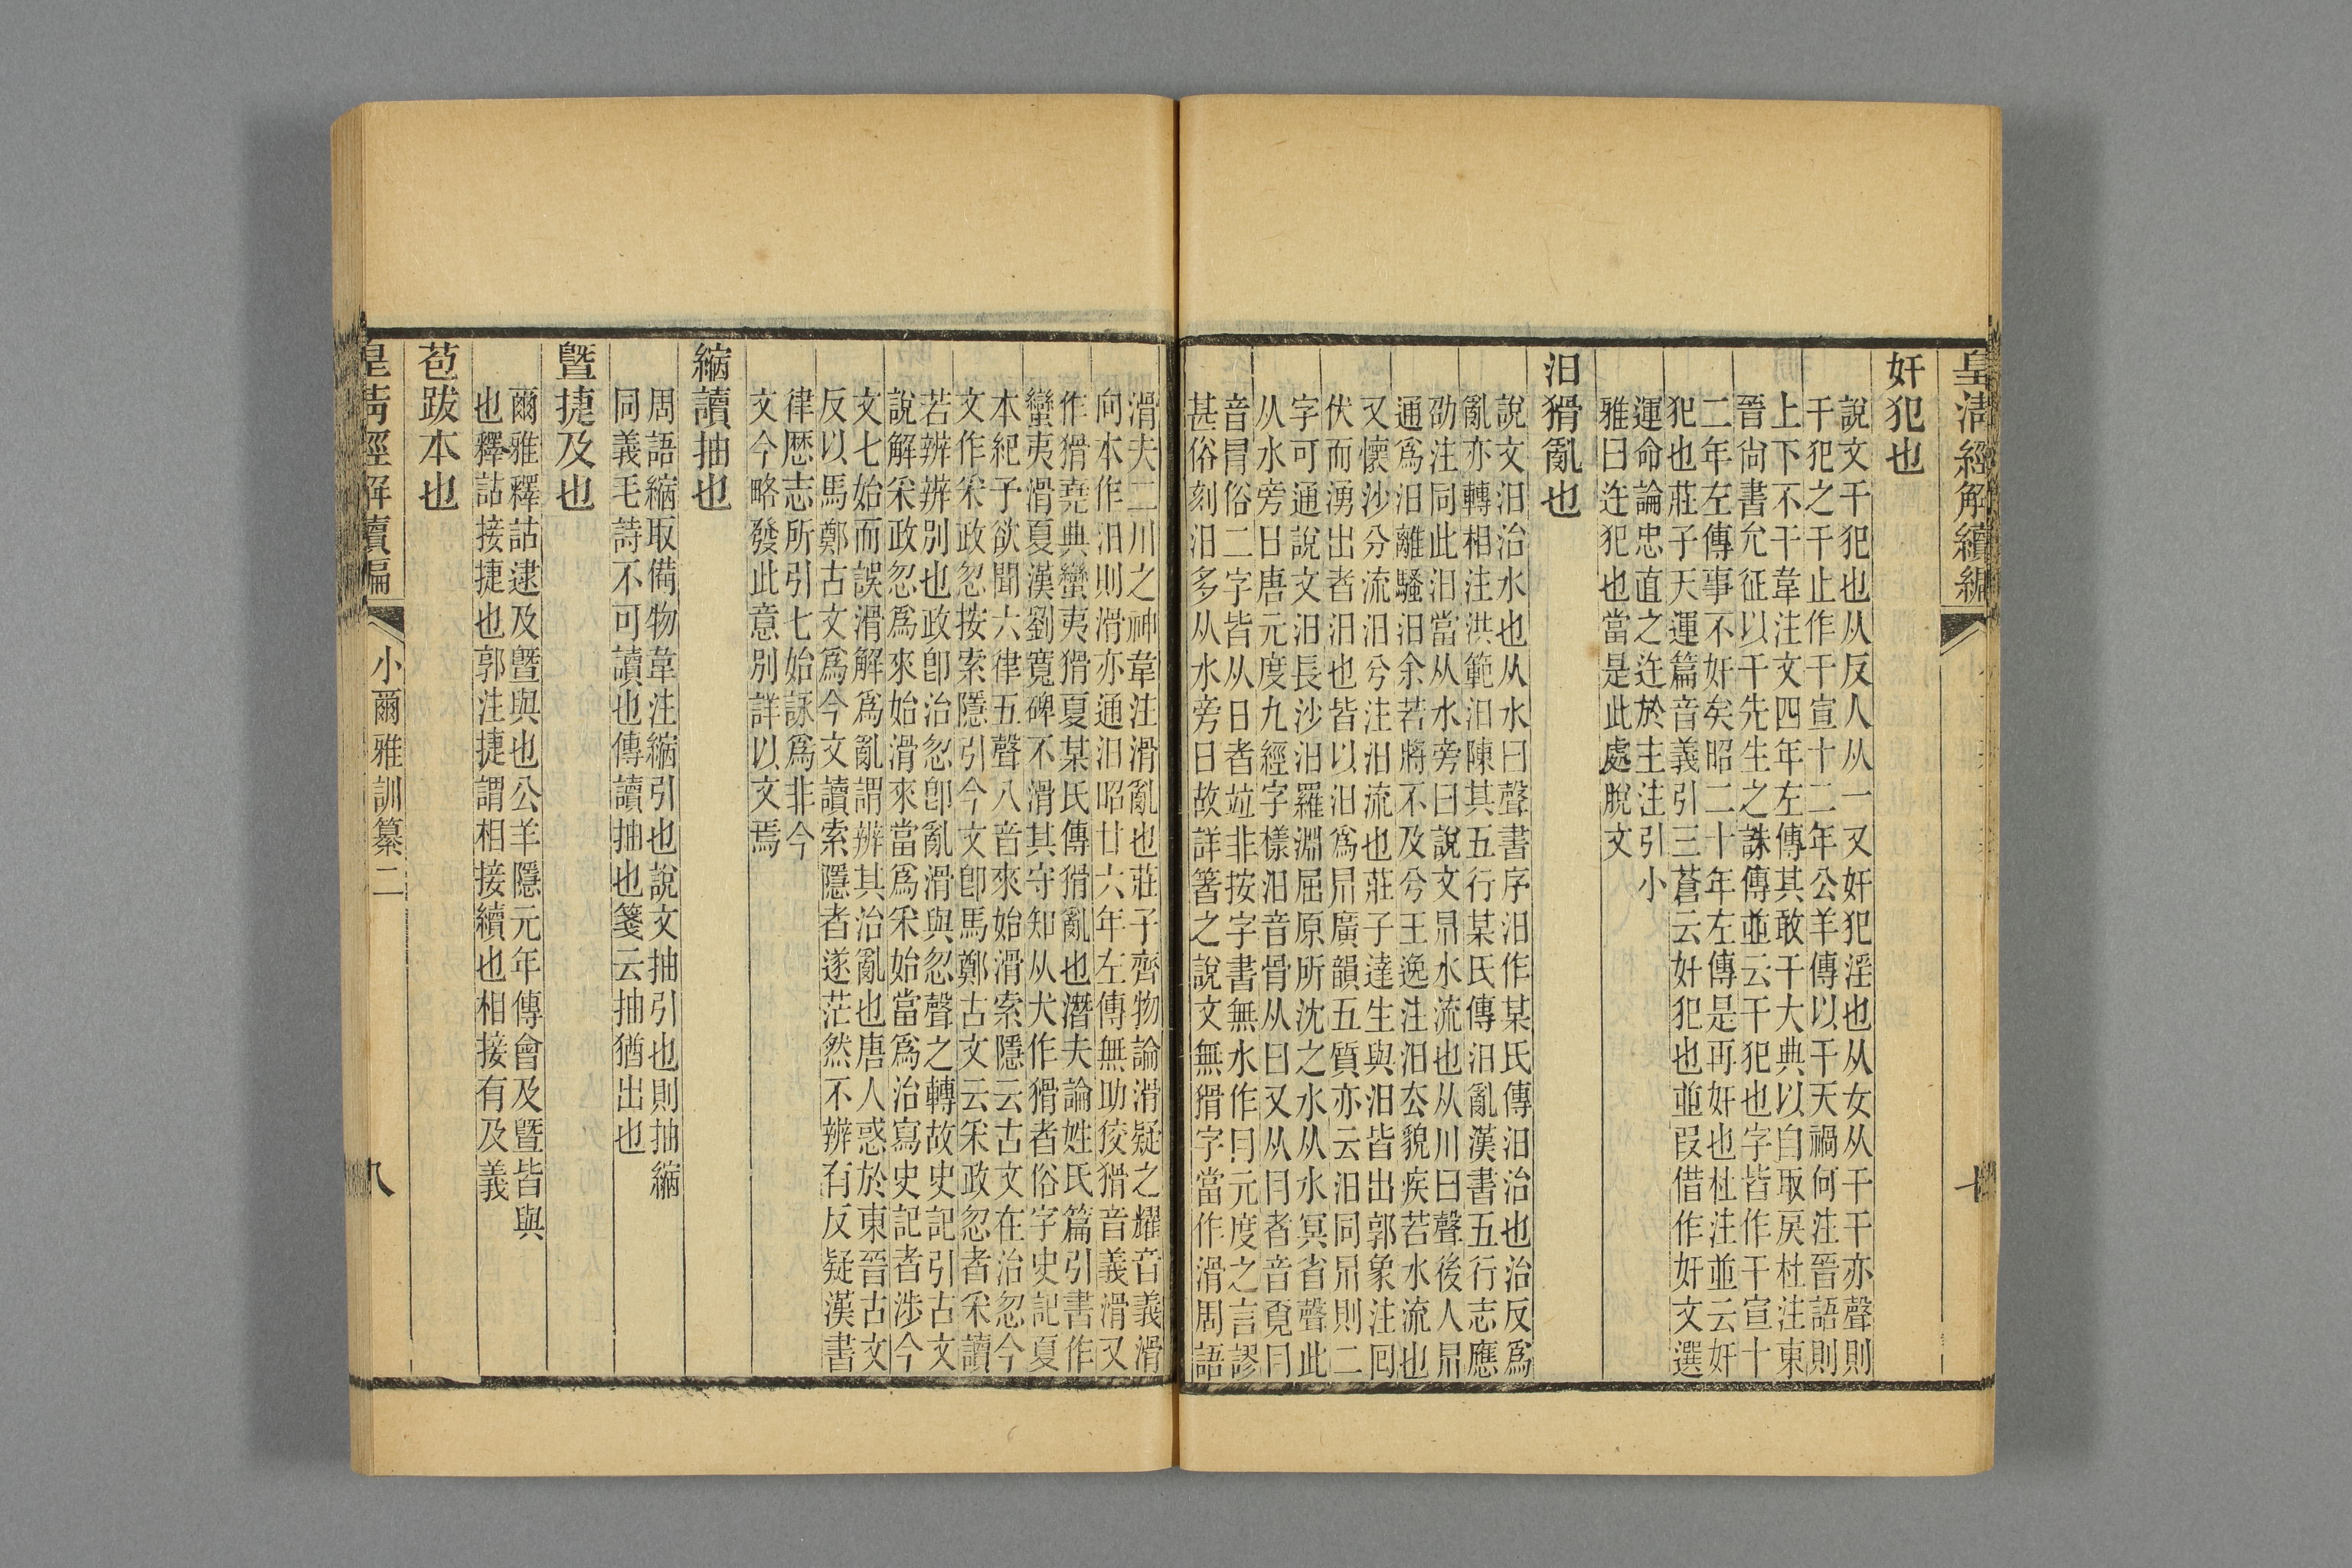 皇清經解續編
奸犯也
說文干犯也从反入从一又奸犯淫也从女从干干亦聲則
干犯之干止作干宣十二年公羊傳以干天禍何注晉語則
上下不干韋注文四年左傳其敢干大典以自取戾杜注東
晉尙書允征以干先生之誅傳並云干犯也字皆作干宣十
二年左傳事不奸矣昭二十年左傳是再奸也杜注並云奸
犯也莊子天運篇音義引三蒼云奸犯也並叚借作奸文選
運命論忠直之迕於主注引小
雅曰迕犯也當是此處脫文
汩猾亂也
說文汩治水也从水曰聲書序汩作某氏傳汩治也治反爲
亂亦轉相注洪範汩陳其五行某氏傳汩亂漢書五行志應
劭注同此汩當从水旁曰說文㫕水流也从川曰聲後人㫕
通爲汩離騷汩余若將不及兮王逸注汩去貌疾若水流也
又懷沙分流汩兮注汩流也莊子達生與汩皆出郭象注回
伏而湧出者汩也皆以汩爲㫕廣韻五質亦云汩同㫕則二
字可通說文汨長沙汨羅淵屈原所沈之水从水冥省聲此
从水旁日唐元度九經字樣汩音骨从曰又从冃者音覓曰
音冒俗二字皆从日者竝非按字書無水作冃元度之言謬
甚俗刻汩多从水旁日故詳箸之說文無猾字當作滑周語
滑夫二川之神韋注滑亂也莊子齊物論滑疑之耀音義滑
向本作汩則滑亦通汩昭廿六年左傳無助狡猾音義滑又
作猾堯典蠻夷猾夏某氏傳猾亂也潛夫論姓氏篇引書作
蠻夷滑夏漢劉寬碑不滑其守知从犬作猾者俗字史記夏
本紀予欲聞六律五聲八音來始滑索隱云古文在治忽今
文作采政忽按索隱引今文卽馬鄭古文云采政忽者采讀
若辨辨別也政卽治忽卽亂滑與忽聲之轉故史記引古文
說解采政忽爲來始滑來當爲采始當爲治寫史記者涉今
文七始而誤滑解爲亂謂辨其治亂也唐人惑於東晉古文
反以馬鄭古文爲今文讀索隱者遂茫然不辨有反疑漢書
律歷志所引七始詠爲非今
文今略發此意別詳以文焉
縮讀抽也
周語縮取備物韋注縮引也說文抽引也則抽縮
同義毛詩不可讀也傳讀抽也箋云抽猶出也
曁捷及也
爾雅釋詁逮及曁與也公羊隱元年傳會及曁皆與
也釋詁接捷也郭注捷謂相接續也相接有及義
苞跋本也
皇淸經解續編
小爾雅訓纂二
八